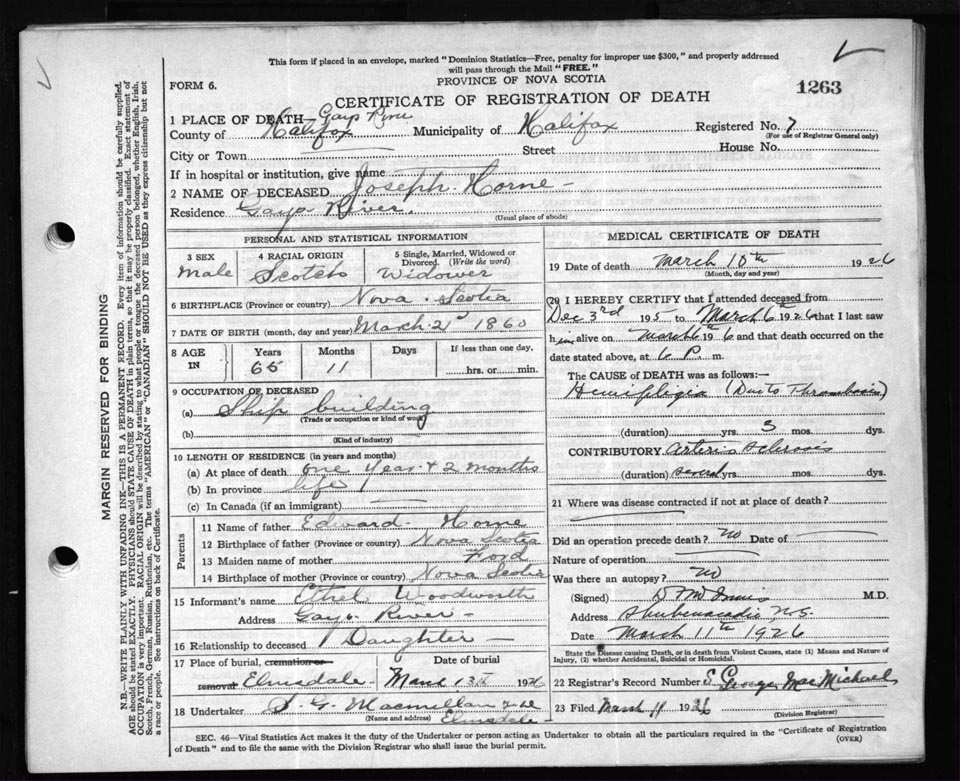 This form if placed in an envelope, marked "Dominion Statistics—Free, penalty for improper use $300," and properly addressed
will pass through the Mail "FREE."
PROVINCE OF NOVA SCOTIA
FORM 6.
1263
CERTIFICATE OF REGISTRATION OF DEATH
1 PLACE OF DEATH Gays River
County of Halifax Municipality of Halifax Registered No. 7
(For use of Registrar General only)
City or Town Street House No.
If in hospital or institution, give name
2 NAME OF DECEASED Joseph Horne
Residence Gays River.
(Usual place of abode)
PERSONAL AND STATISTICAL INFORMATION
3 SEX 4 RACIAL ORIGIN 5 Single, Married, Widowed or Divorced. (Write the word)
Male Scotch Widower
6 BIRTHPLACE (Province or country) Nova Scotia
7 DATE OF BIRTH (month, day and year) March 21 1860
8 AGE IN Years Months Days If less than one day,
65 11 hrs. or min.
9 OCCUPATION OF DECEASED
(a) Ship building
(Trade or occupation or kind of work)
(b)
(Kind of industry)
10 LENGTH OF RESIDENCE (in years and months)
(a) At place of death one year + 2 months
(b) In province life
(c) In Canada (if an immigrant)
Parents
11 Name of father Edward Horne
12 Birthplace of father (Province or country) Nova Scotia
13 Maiden name of mother
14 Birthplace of mother (Province or country) Nova Scotia
15 Informant's name Ethel Woodworth
Address Gays River
16 Relationship to deceased Daughter
17 Place of burial, cremation or Date of burial
removal Elmsdale March 13th 1926
18 Undertaker S. G. Macmillan
(Name and address) Elmsdale
MEDICAL CERTIFICATE OF DEATH
19 Date of death March 10th 1926
(Month, day and year)
(20) I HEREBY CERTIFY that I attended deceased from
Dec 3rd 195 to March 6th 1926 that I last saw
him alive on March 6th 19 6 and that death occurred on the
date stated above, at 6 P. m.
The CAUSE of DEATH was as follows:—
Hemiplegia (Due to Thrombosis)
(duration) yrs. 3 mos. dys.
CONTRIBUTORY Arterio Sclerosis
(duration) several yrs. mos. dys.
21 Where was disease contracted if not at place of death?
Did an operation precede death? no Date of
Nature of operation
Was there an autopsy? no
(Signed) M.D.
Address Shubenacadie N.S.
Date March 11th 1926
State the Disease causing Death, or in death from Violent Causes, state (1) Means and Nature of
Injury, (2) whether Accidental, Suicidal or Homicidal.
22 Registrar's Record Number George MacMichael
23 Filed March 11 1926
(Division Registrar)
SEC. 46—Vital Statistics Act makes it the duty of the Undertaker or person acting as Undertaker to obtain all the particulars required in the "Certificate of Registration
of Death" and to file the same with the Division Registrar who shall issue the burial permit.
(OVER)
MARGIN RESERVED FOR BINDING
N.B.—WRITE PLAINLY WITH UNFADING INK—THIS IS A PERMANENT RECORD. Every item of information should be carefully supplied.
AGE should be stated EXACTLY. PHYSICIANS should STATE CAUSE OF DEATH in plain terms, so that it may be properly classified. Exact statement of
OCCUPATION is very important. RACIAL ORIGIN will be described by stating to what people or tongue the deceased person belonged, whether English, Irish,
Scotch, French, German, Russian, Ruthenian, etc. The terms "AMERICAN" or "CANADIAN" SHOULD NOT BE USED as they express citizenship but not
a race or people. See instructions on back of Certificate.